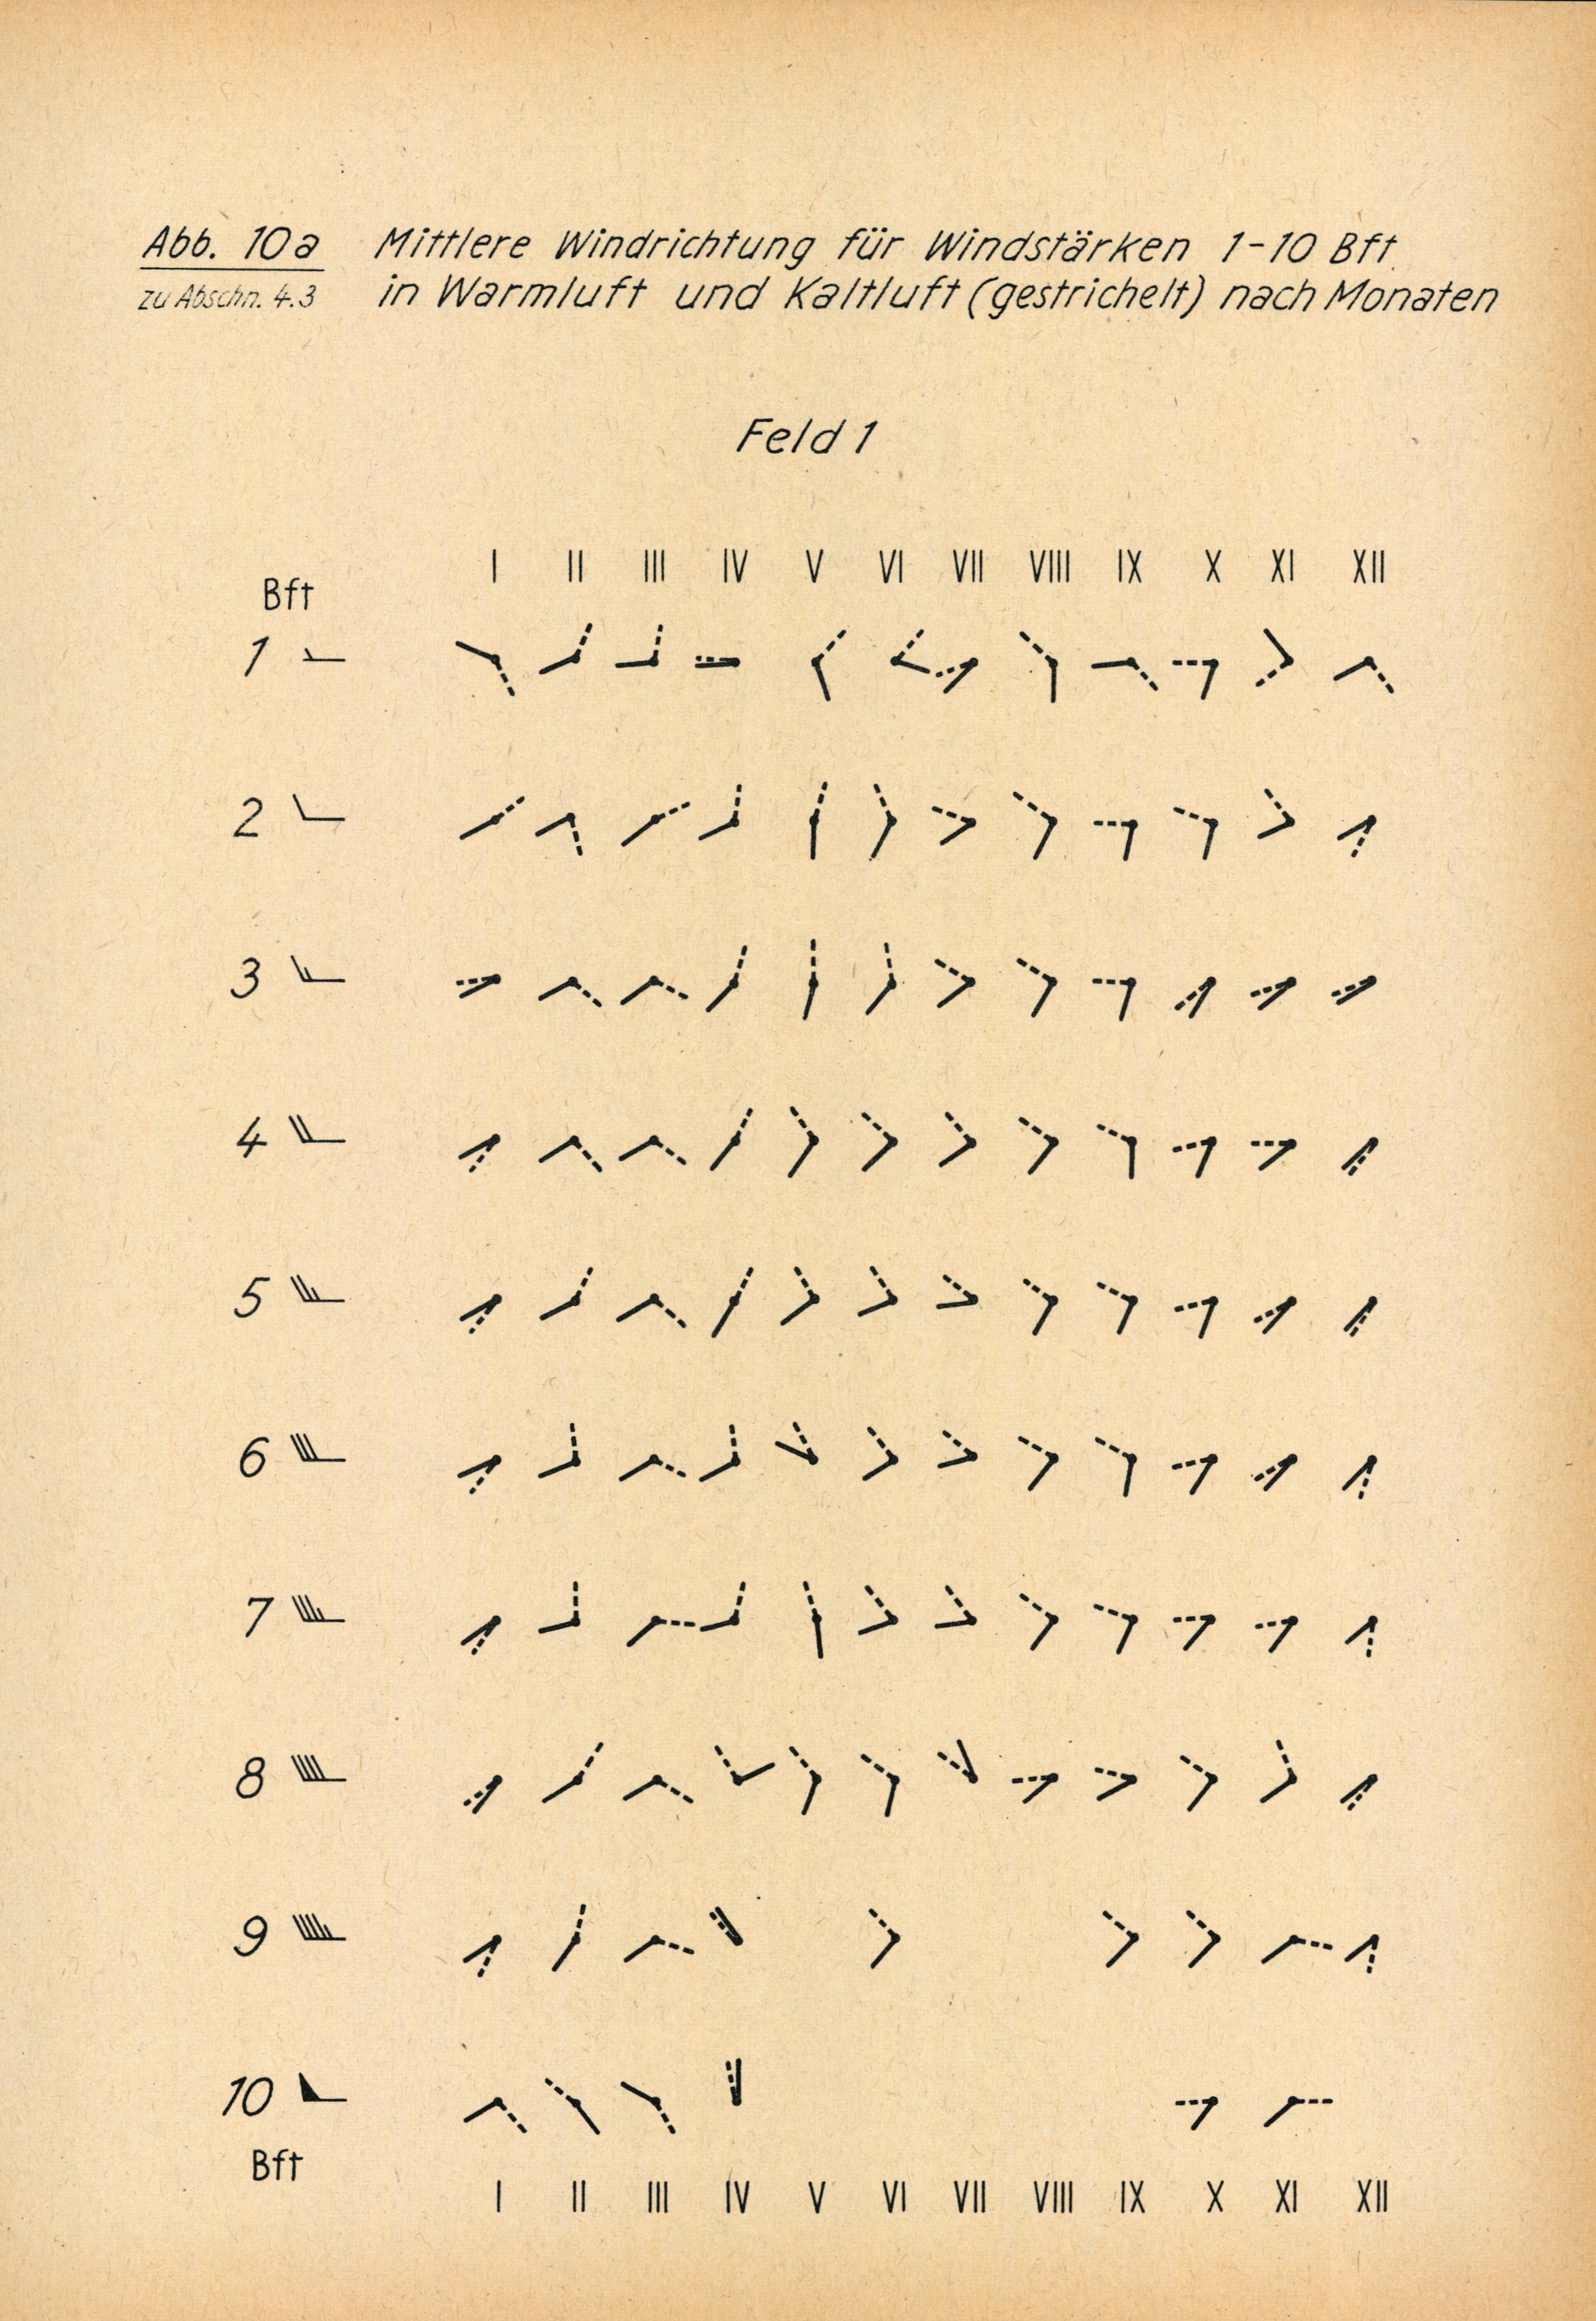 Abb. 10a Mittlere Windrichtung für Windstärken 1-10 Bft.
zu Abschn. 4.3 in Warmluft und Kaltluft (gestrichelt) nach Monaten
Feld 1
I II III IV V VI VII VIII IX X XI XII
Bft
1
2
3
4
5
6
7
8
9
10
Bft
I II III IV V VI VII VIII IX X XI XII